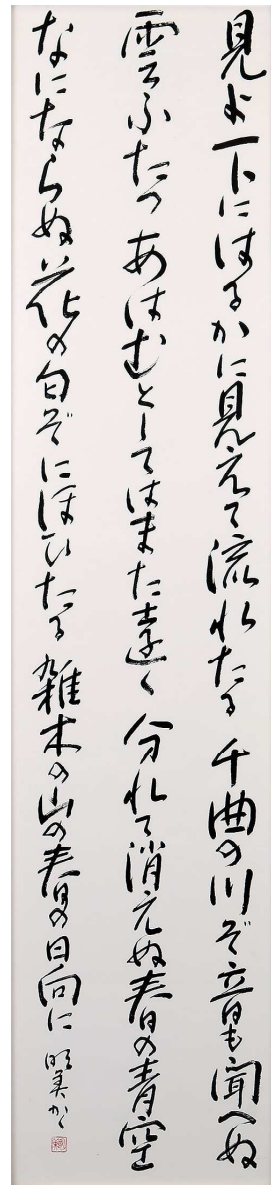 見よ下にはるかに見えて流れたる 千曲の川ぞ音も聞へぬ
雲ふたつあはむとしてはまた遠く 分れて消えぬ春の青空
なにならぬ花の匂ぞにほひたる 雑木の山の春の日向に 明美かく